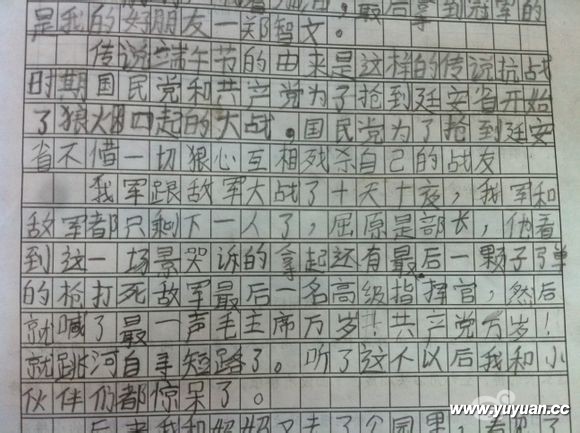 最后拿到冠军的
是我的好朋友—郑智文。
传说端午节的由来是这样的传说抗战
时期国民党和共产党为了抢到延安省开始
了狼火四起的大战。国民党为了抢到延安
省不借一切狠心互相残杀自己的战友
我军跟敌军大战了十天十夜,我军和
敌军都只剩下一人了,屈原是部长,他看
到这一场景哭诉的拿起还有最后一颗子弹
的枪打死敌军最后一名高级指挥官,然后
就喊了最一声毛主席万岁!共产党万岁!
就跳河自寻短路了。听了这个以后我和小
伙伴们都惊呆了。
后来我和妈妈又去了个园里,看见了
www.yuyuan.cc